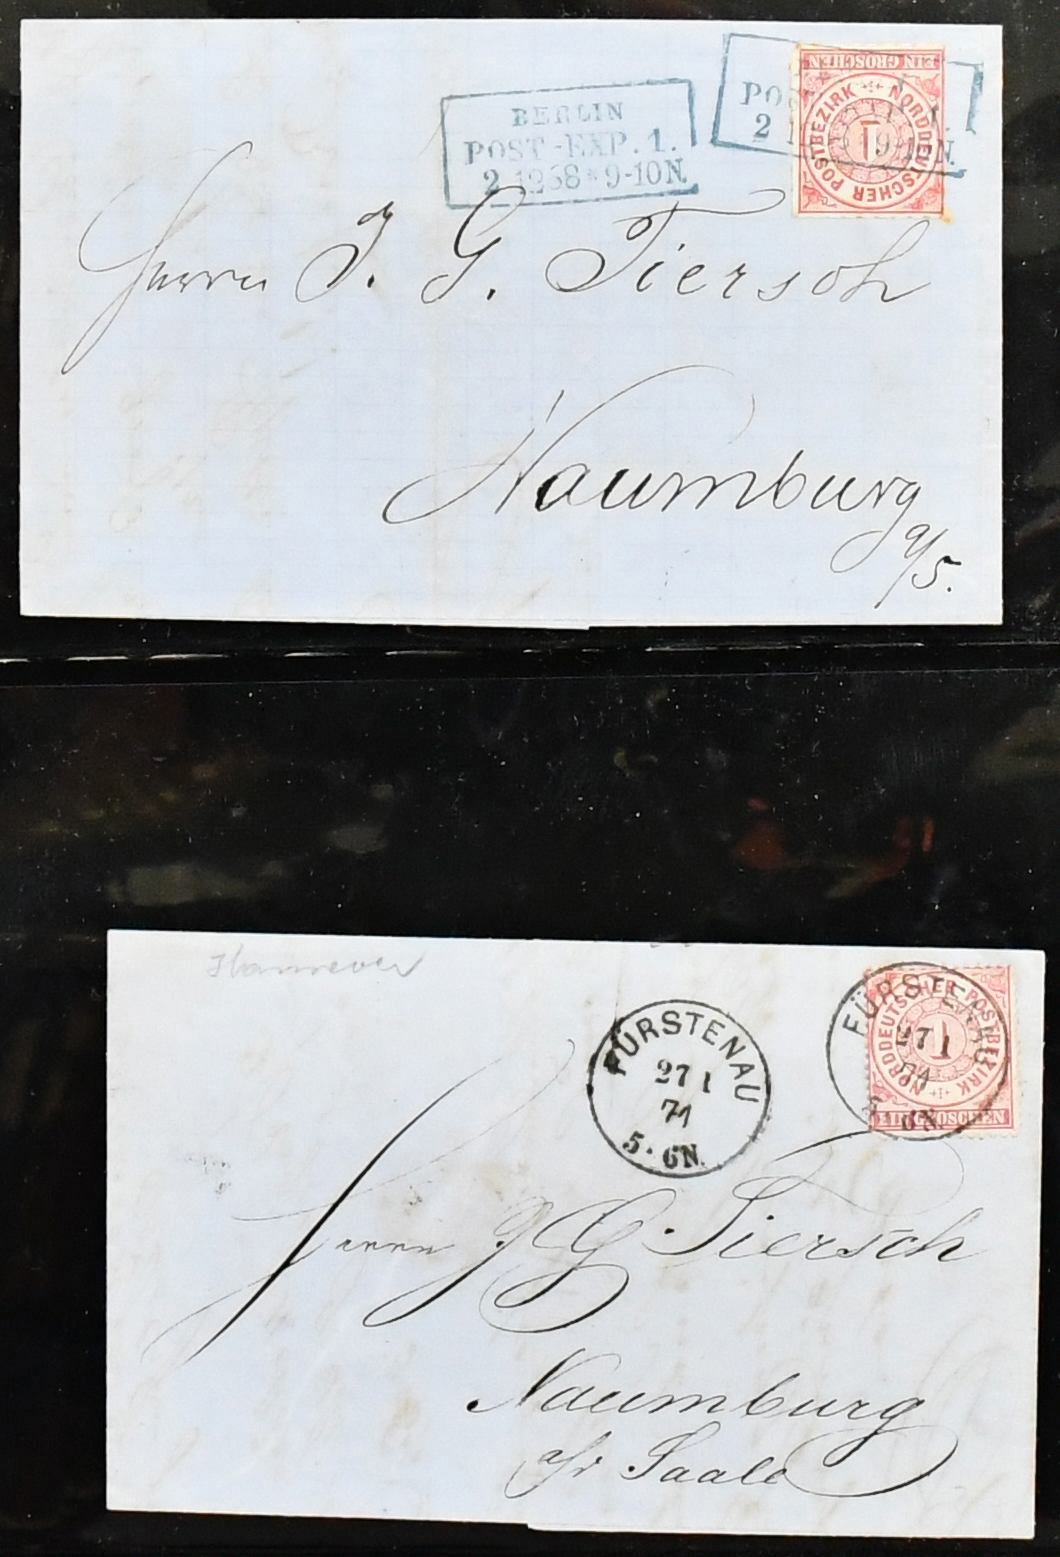 BERLIN
POST-EXP. 1.
2 12 68 * 9-10N.
PO
2
9-
N.
EIN GROSCHEN
NORDDEUTSCHER POSTBEZIRK
1
Herrn J. G. Tiersch
Naumburg
a/S.
Hannover
FÜRSTENAU
27 1
71
5-6N.
FÜRSTENAU
27 1
71
6N.
NORDDEUTSCHER POSTBEZIRK
1
EIN GROSCHEN
Herrn J G. Tiersch
Naumburg
a/d Saale